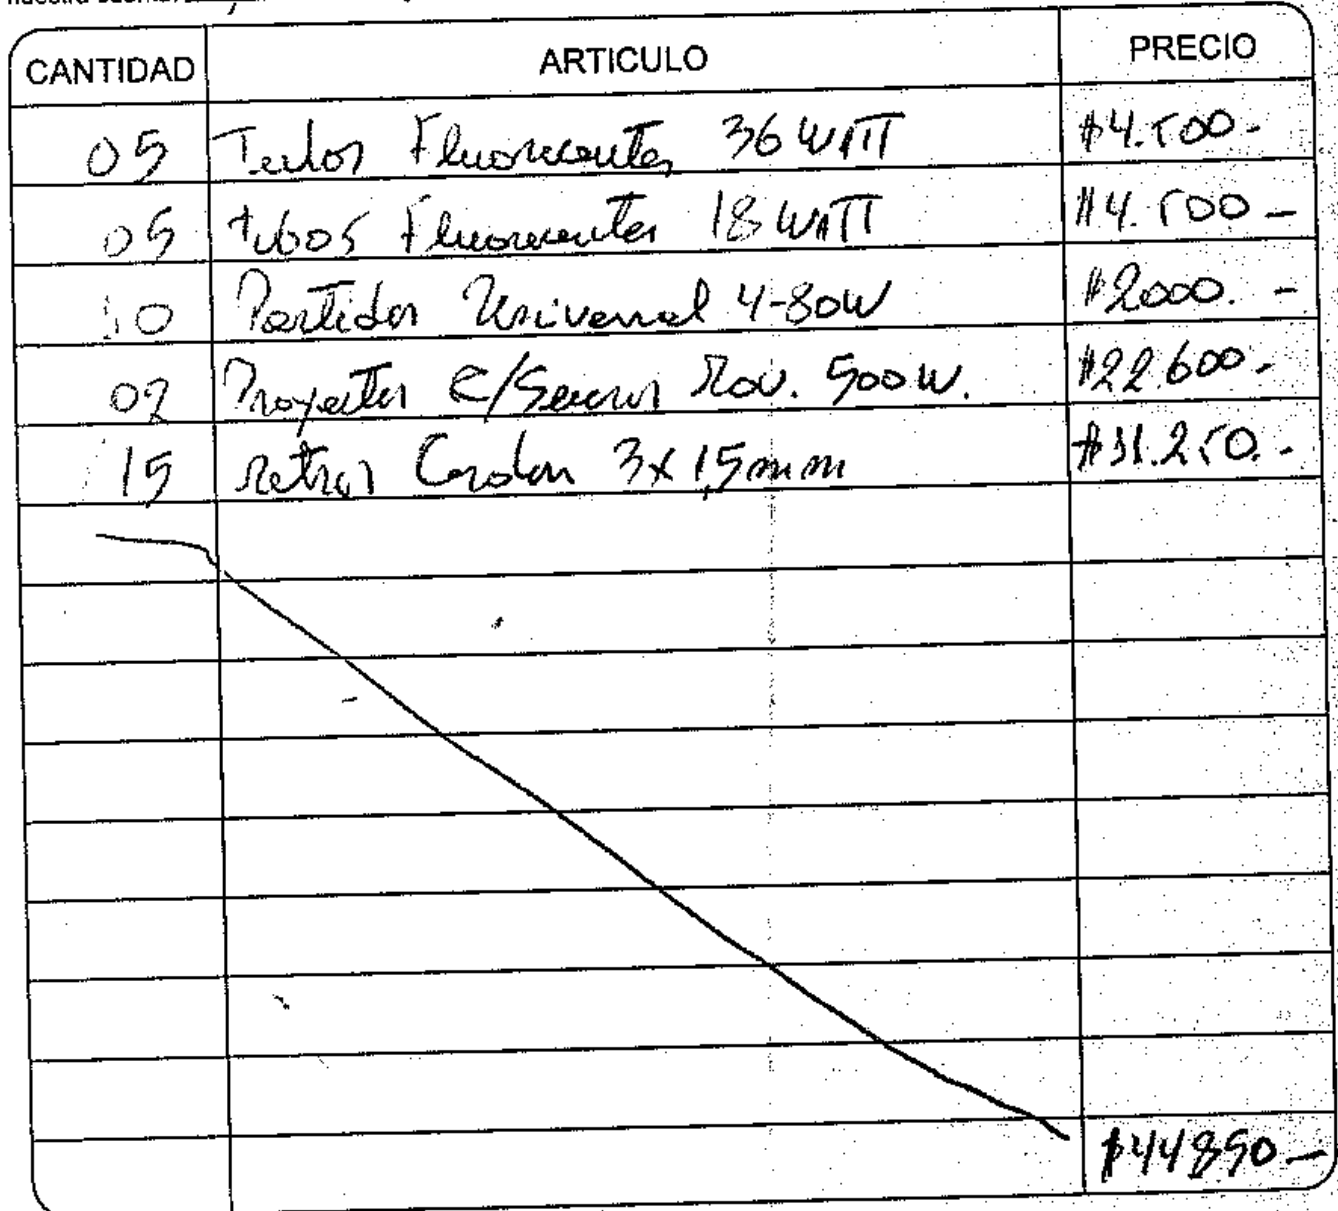 CANTIDAD ARTICULO PRECIO
05 Tubos Fluorescentes 36 WATT $4.500.-
05 tubos Fluorescentes 18 WATT $4.500-
10 Partidor Universal 4-80W $2000.-
02 Proyector C/Sensor Mov. 500 W. $22.600.-
15 Metros Cordon 3x1,5mm $11.250.-
$44850-